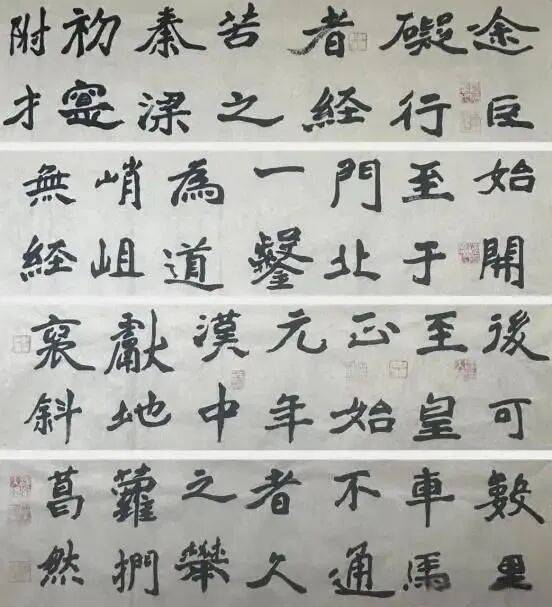 途巨
礙行
者経
苦之
秦梁
初寔
附才
始開
至于
門北
一鑿
為道
峭岨
無経
後可
至皇
正始
元年
漢中
獻地
襃斜
數里
車馬
不通
者久
之攀
蘿捫
葛然